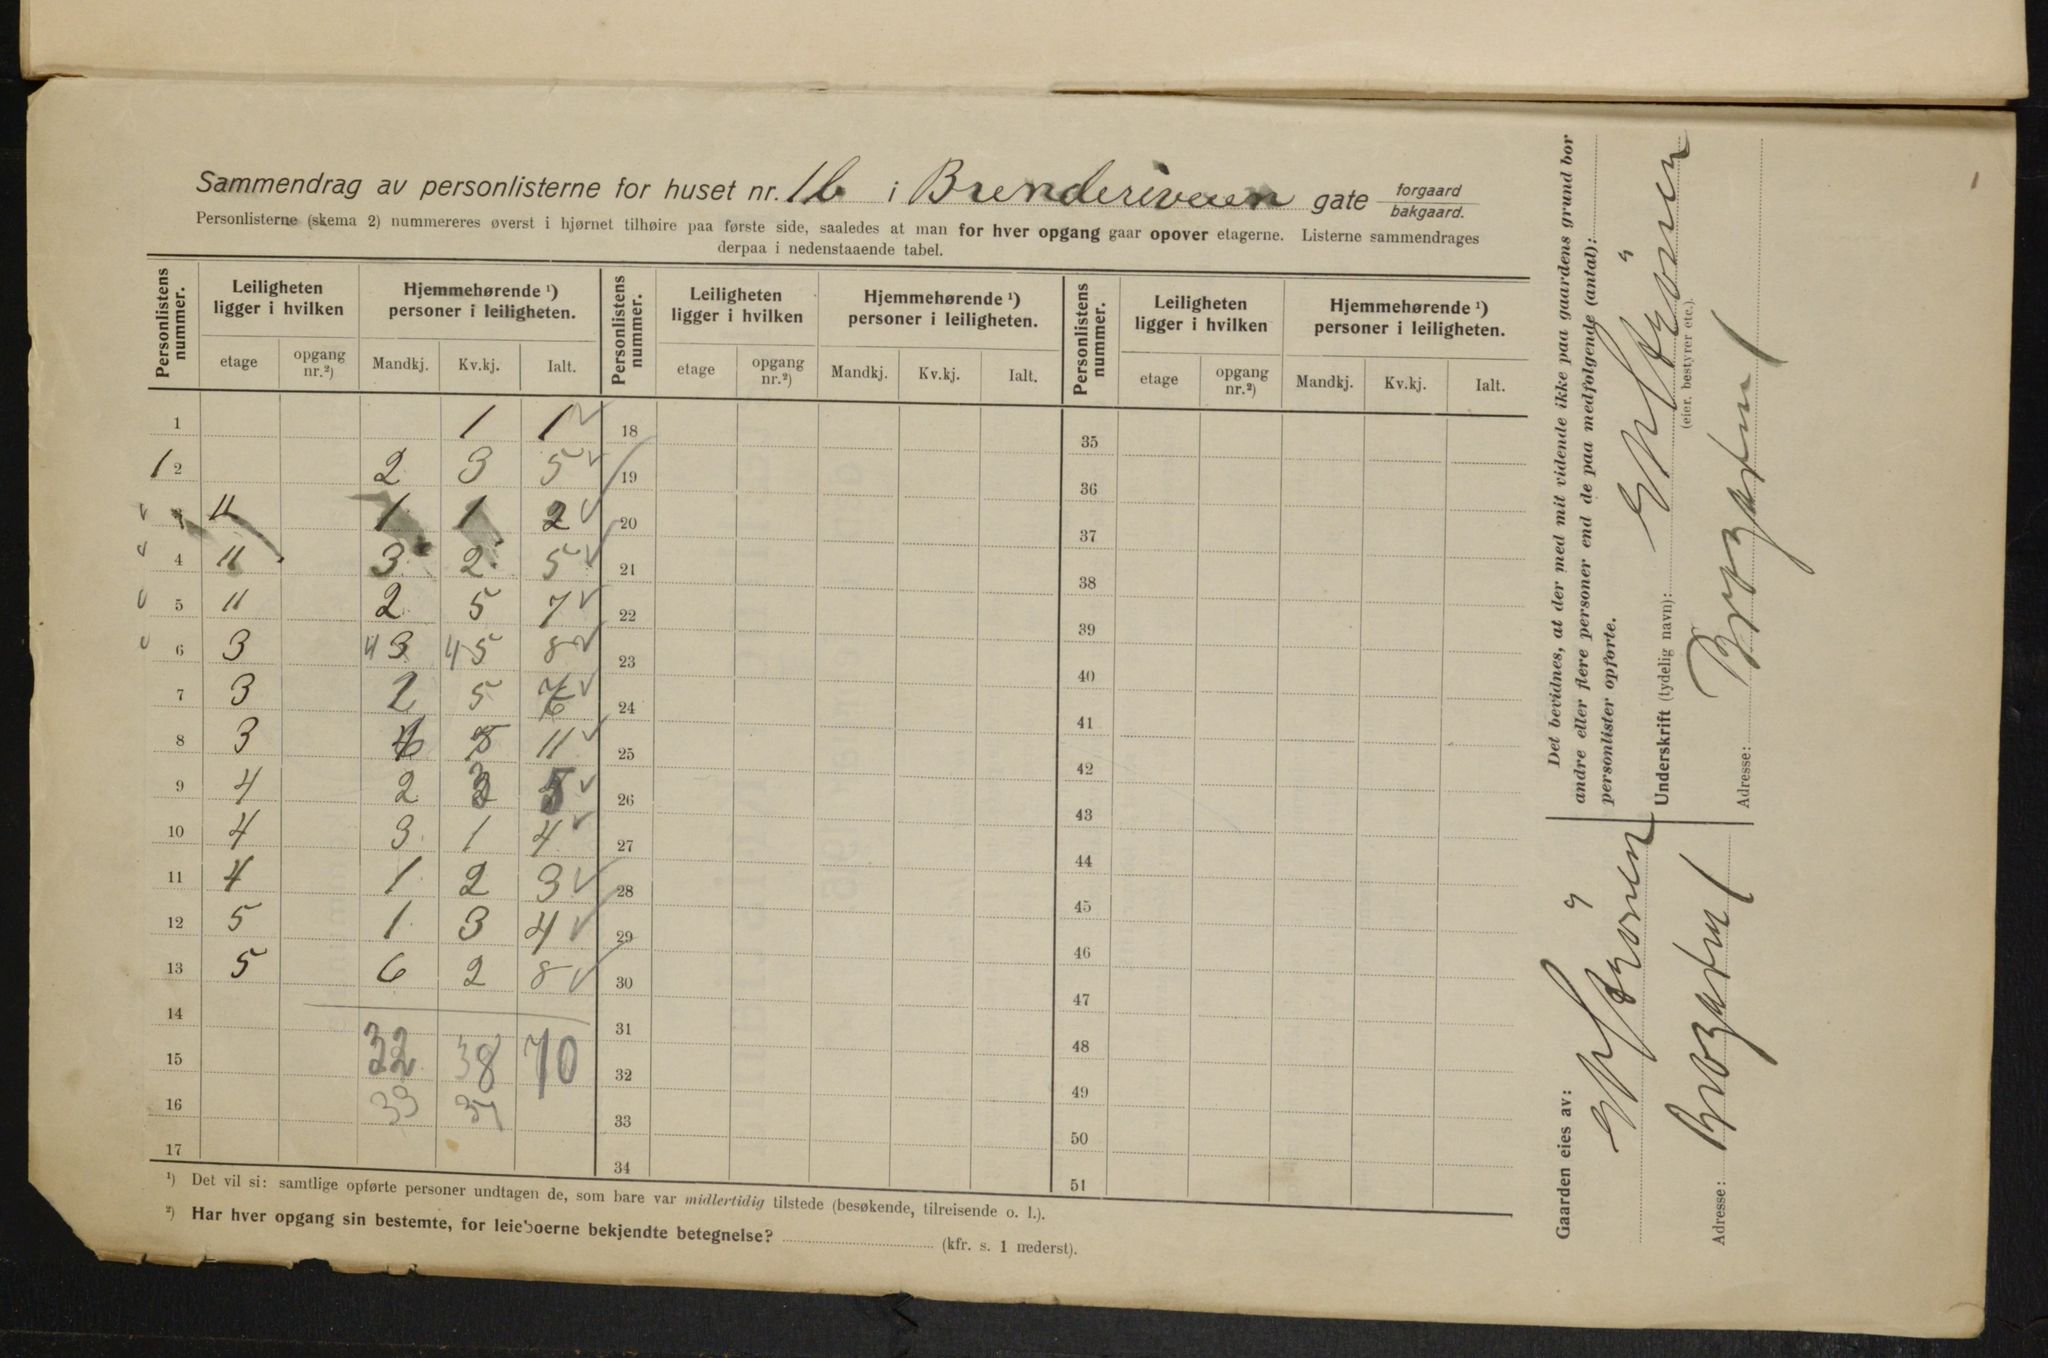 Sammendrag av personlisterne for huset nr. 1b i Brenderiveien gate forgaard bakgaard.
Personlisterne (skema 2) nummereres øverst i hjørnet tilhøire paa første side, saaledes at man for hver opgang gaar opover etagerne. Listerne sammendrages
derpaa i nedenstaaende tabel.
Personlistens nummer. Leiligheten ligger i hvilken Hjemmehørende ¹) personer i leiligheten. Personlistens nummer. Leiligheten ligger i hvilken Hjemmehørende ¹) personer i leiligheten. Personlistens nummer. Leiligheten ligger i hvilken Hjemmehørende ¹) personer i leiligheten.
etage opgang nr.²) Mandkj. Kv.kj. Ialt. etage opgang nr.²) Mandkj. Kv.kj. Ialt. etage opgang nr.²) Mandkj. Kv.kj. Ialt.
1 1 1 18 35
1 2 2 3 5 19 36
11 1 1 2 20 37
4 11 3 2 5 21 38
5 11 2 5 7 22 39
6 3 4 3 4 5 8 23 40
7 3 2 5 24 41
8 3 11 25 42
9 4 2 3 5 26 43
10 4 3 1 4 27 44
11 4 1 2 3 28 45
12 5 1 3 4 29 46
13 5 6 2 8 30 47
14 31 48
15 32 38 70 32 49
16 33 33 50
17 34 51
¹) Det vil si: samtlige opførte personer undtagen de, som bare var midlertidig tilstede (besøkende, tilreisende o. l.).
²) Har hver opgang sin bestemte, for leieboerne bekjendte betegnelse? (kfr. s. 1 nederst).
Det bevidnes, at der med mit vidende ikke paa gaardens grund bor
andre eller flere personer end de paa medfølgende (antal):
personlister opførte.
Underskrift (tydelig navn):
(eier, bestyrer etc.).
Adresse:
Gaarden eies av:
Adresse:
1